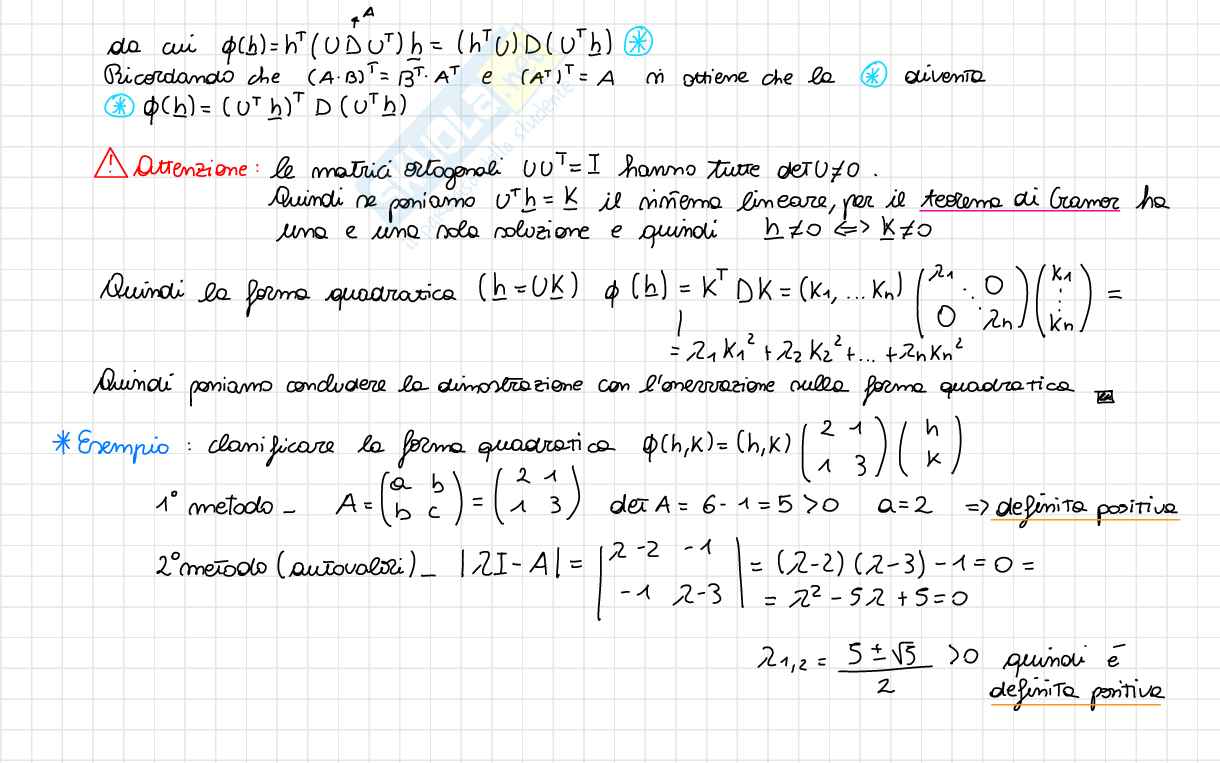 A
da cui φ(h)=hᵀ(UDUᵀ)h = (hᵀU)D(Uᵀh) *
Ricordando che (A·B)ᵀ=Bᵀ·Aᵀ e (Aᵀ)ᵀ=A si ottiene che la * diventa
* φ(h)=(Uᵀh)ᵀ D (Uᵀh)
⚠ Attenzione: le matrici ortogonali UUᵀ=I hanno tutte det U≠0.
Quindi se poniamo Uᵀh=K il sistema lineare, per il teorema di Cramer ha
una e una sola soluzione e quindi h≠0 <=> K≠0
Quindi la forma quadratica (h=UK) φ(h)=Kᵀ DK=(K₁,...Kn) (λ₁ ⋱ 0 0 λn) (K₁ ⋮ Kn) =
= λ₁K₁²+λ₂K₂²+...+λnKn²
Quindi possiamo concludere la dimostrazione con l'osservazione sulla forma quadratica
* Esempio: classificare la forma quadratica φ(h,K)=(h,K) (2 1 1 3) (h K)
1° metodo - A=(a b b c)=(2 1 1 3) det A=6-1=5>0 a=2 => definita positiva
2° metodo (autovalori) - |λI-A|=|λ-2 -1 -1 λ-3| = (λ-2)(λ-3)-1=0=
= λ²-5λ+5=0
λ₁,₂ = 5±√5 / 2 >0 quindi é
definita positiva
SKUOLA.net